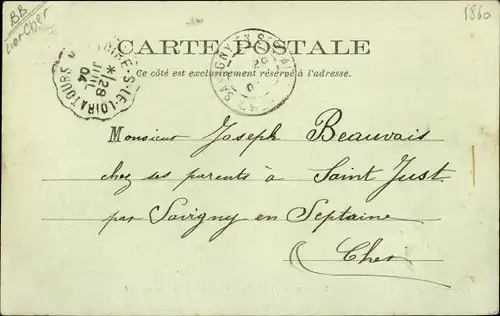 BB
1860
CARTE POSTALE
Ce côté est exclusivement réservé à l'adresse.
S-LE-LOIR A TOURS
* 28
JUIL
04
SAVIGNY EN SEPTAINE
Monsieur Joseph Beauvais
chez ses parents à Saint Just
par Savigny en Septaine
Cher